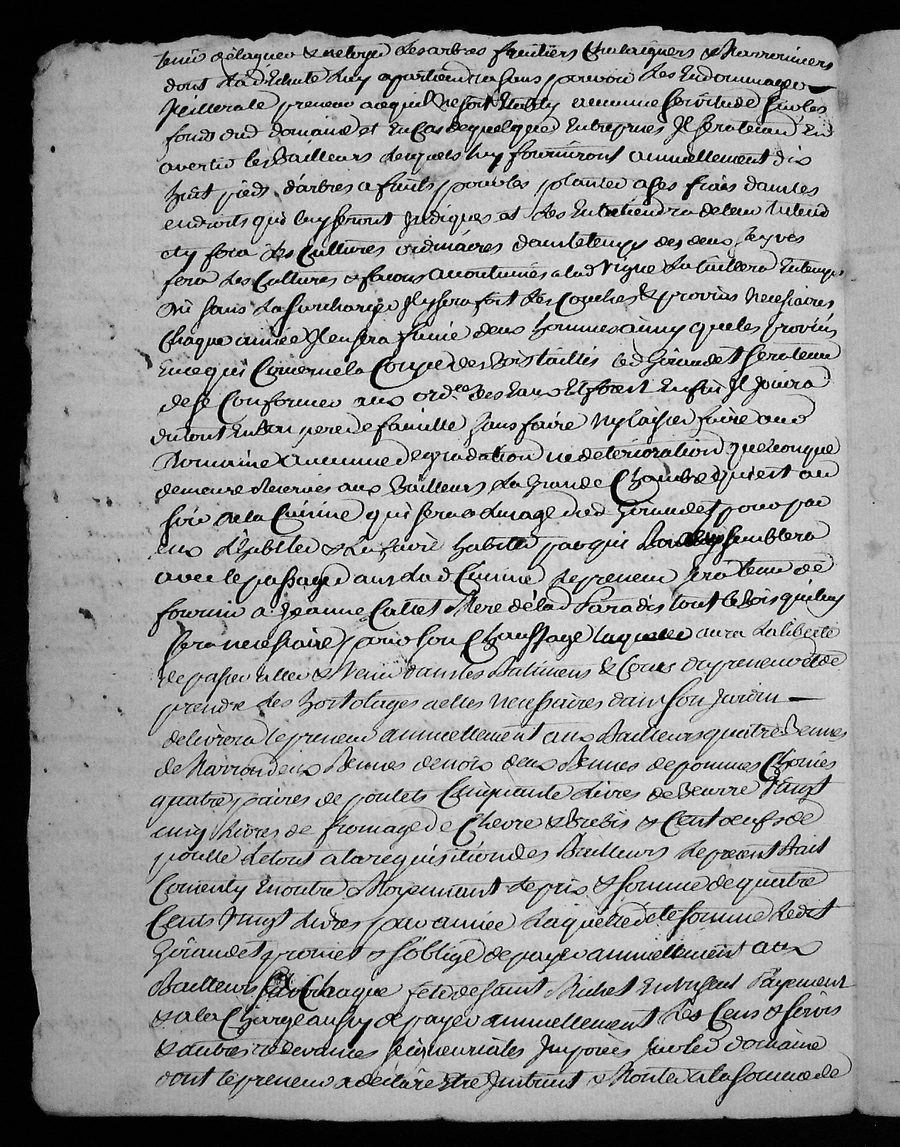 tenu d'elaguer & netoyer les arbres fruitiers Chataigners & Marronniers
dont la d'echute luy apartiendra sans pouvoir les Endommager
Veillera le preneur acequil ne soit Etably aucunne servitude sur les
fonds dud domaine et En cas de quelques Entreprises Il sera tenu d'En
avertir les Bailleurs lesquels luy fourniront annuellement dix
huit pieds d'arbres a fruits pour les planter a ses frais dans les
endroits qui luy seront Indiqués et les Entretiendra de leur
et y fera les Cultures ordinaires dans le temps des deux seyves
fera les Cultures & façons acoutumés a lad Vigne la taillera En temps
du sans la surcharger Il y sera fait les Couches & provins necessaires
Chaque année Il en sera fumé deux hommes ainsy que les provins
En ce qui Concerne la Coupe des Bois taillis led Girandet sera tenu
de se Conformer aux ordces des Eaux Et forest Enfin Il Jouira
du tout En bon pere de famille sans faire ny laisser faire aud
Domaine aucunne degradation ne deterioration quelconque
demeure reservée aux Bailleurs la grande Chambre qui est au
soir de la Cuisine qui sera a l'usage dud Girandet pour par
eux l'habiter & la faire habiter par qui bon leur semblera
avec le passage dans lad Cuisine le preneur sera tenu de
fournir a Jeanne Mere de lad Paradis tout le bois qui luy
sera necessaire pour son Chauffage laquelle aura la liberté
de passer aller & Venir dans les Batimens & Cour du preneur & de
prendre les hortolages a elle necessaires dans son Jardin
delivrera le preneur annuellement aux Bailleurs quatre Bennes
de Marron deux Bennes de noix deux Bennes de pommes Choisies
quatre paires de poulets Cinquante Livres de Beurre Vingt
cinq Livres de fromage de Chevre & Brebis & Cent oeufs de
poulle le tout a la requisition des Bailleurs le present Bail
Consenty En outre Moyennant le prix & somme de quatre
Cents Vingt Livres par année laquelle de somme ledit
Girandet promet & s'oblige de payer annuellement aux
Bailleurs Chaque fete de saint Michel En un seul Payement
& a la Charge aussy de payer annuellement les Cens & servis
& autres redevances seigneuriales Imposés sur led domaine
dont le preneur a declaré Etre Instruit & Monter a la somme de